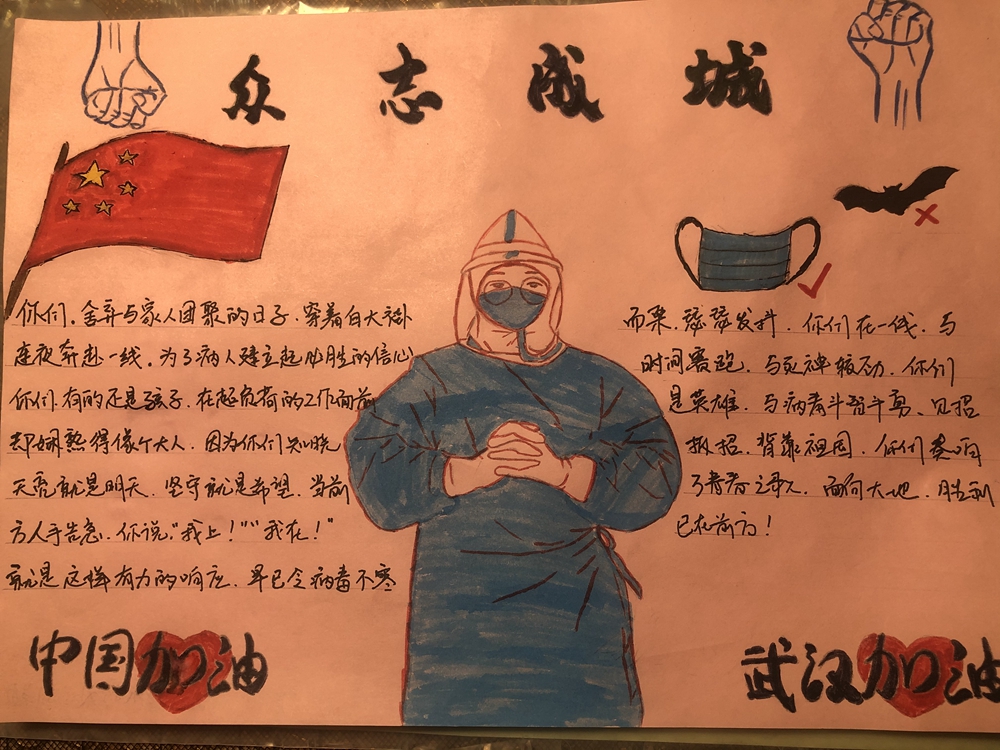 众志成城
你们，舍弃与家人团聚的日子，穿着白大褂
连夜奔赴一线，为了病人建立起必胜的信心
你们有的还是孩子，在起负荷的工作面前
却娴熟得像个大人，因为你们知晓
天亮就是明天，坚守就是希望，当前
方人手告急，你说，“我上！”“我在！”
就是这样有力的响应，早已令病毒不寒
而栗，瑟瑟发抖，你们在一线，与
时间赛跑，与死神较劲，你们
是英雄，与病毒斗智斗勇、见招
拆招，背靠祖国，你们奏响
了青春之歌，面向大地，胜利
已在前方！
中国加油
武汉加油